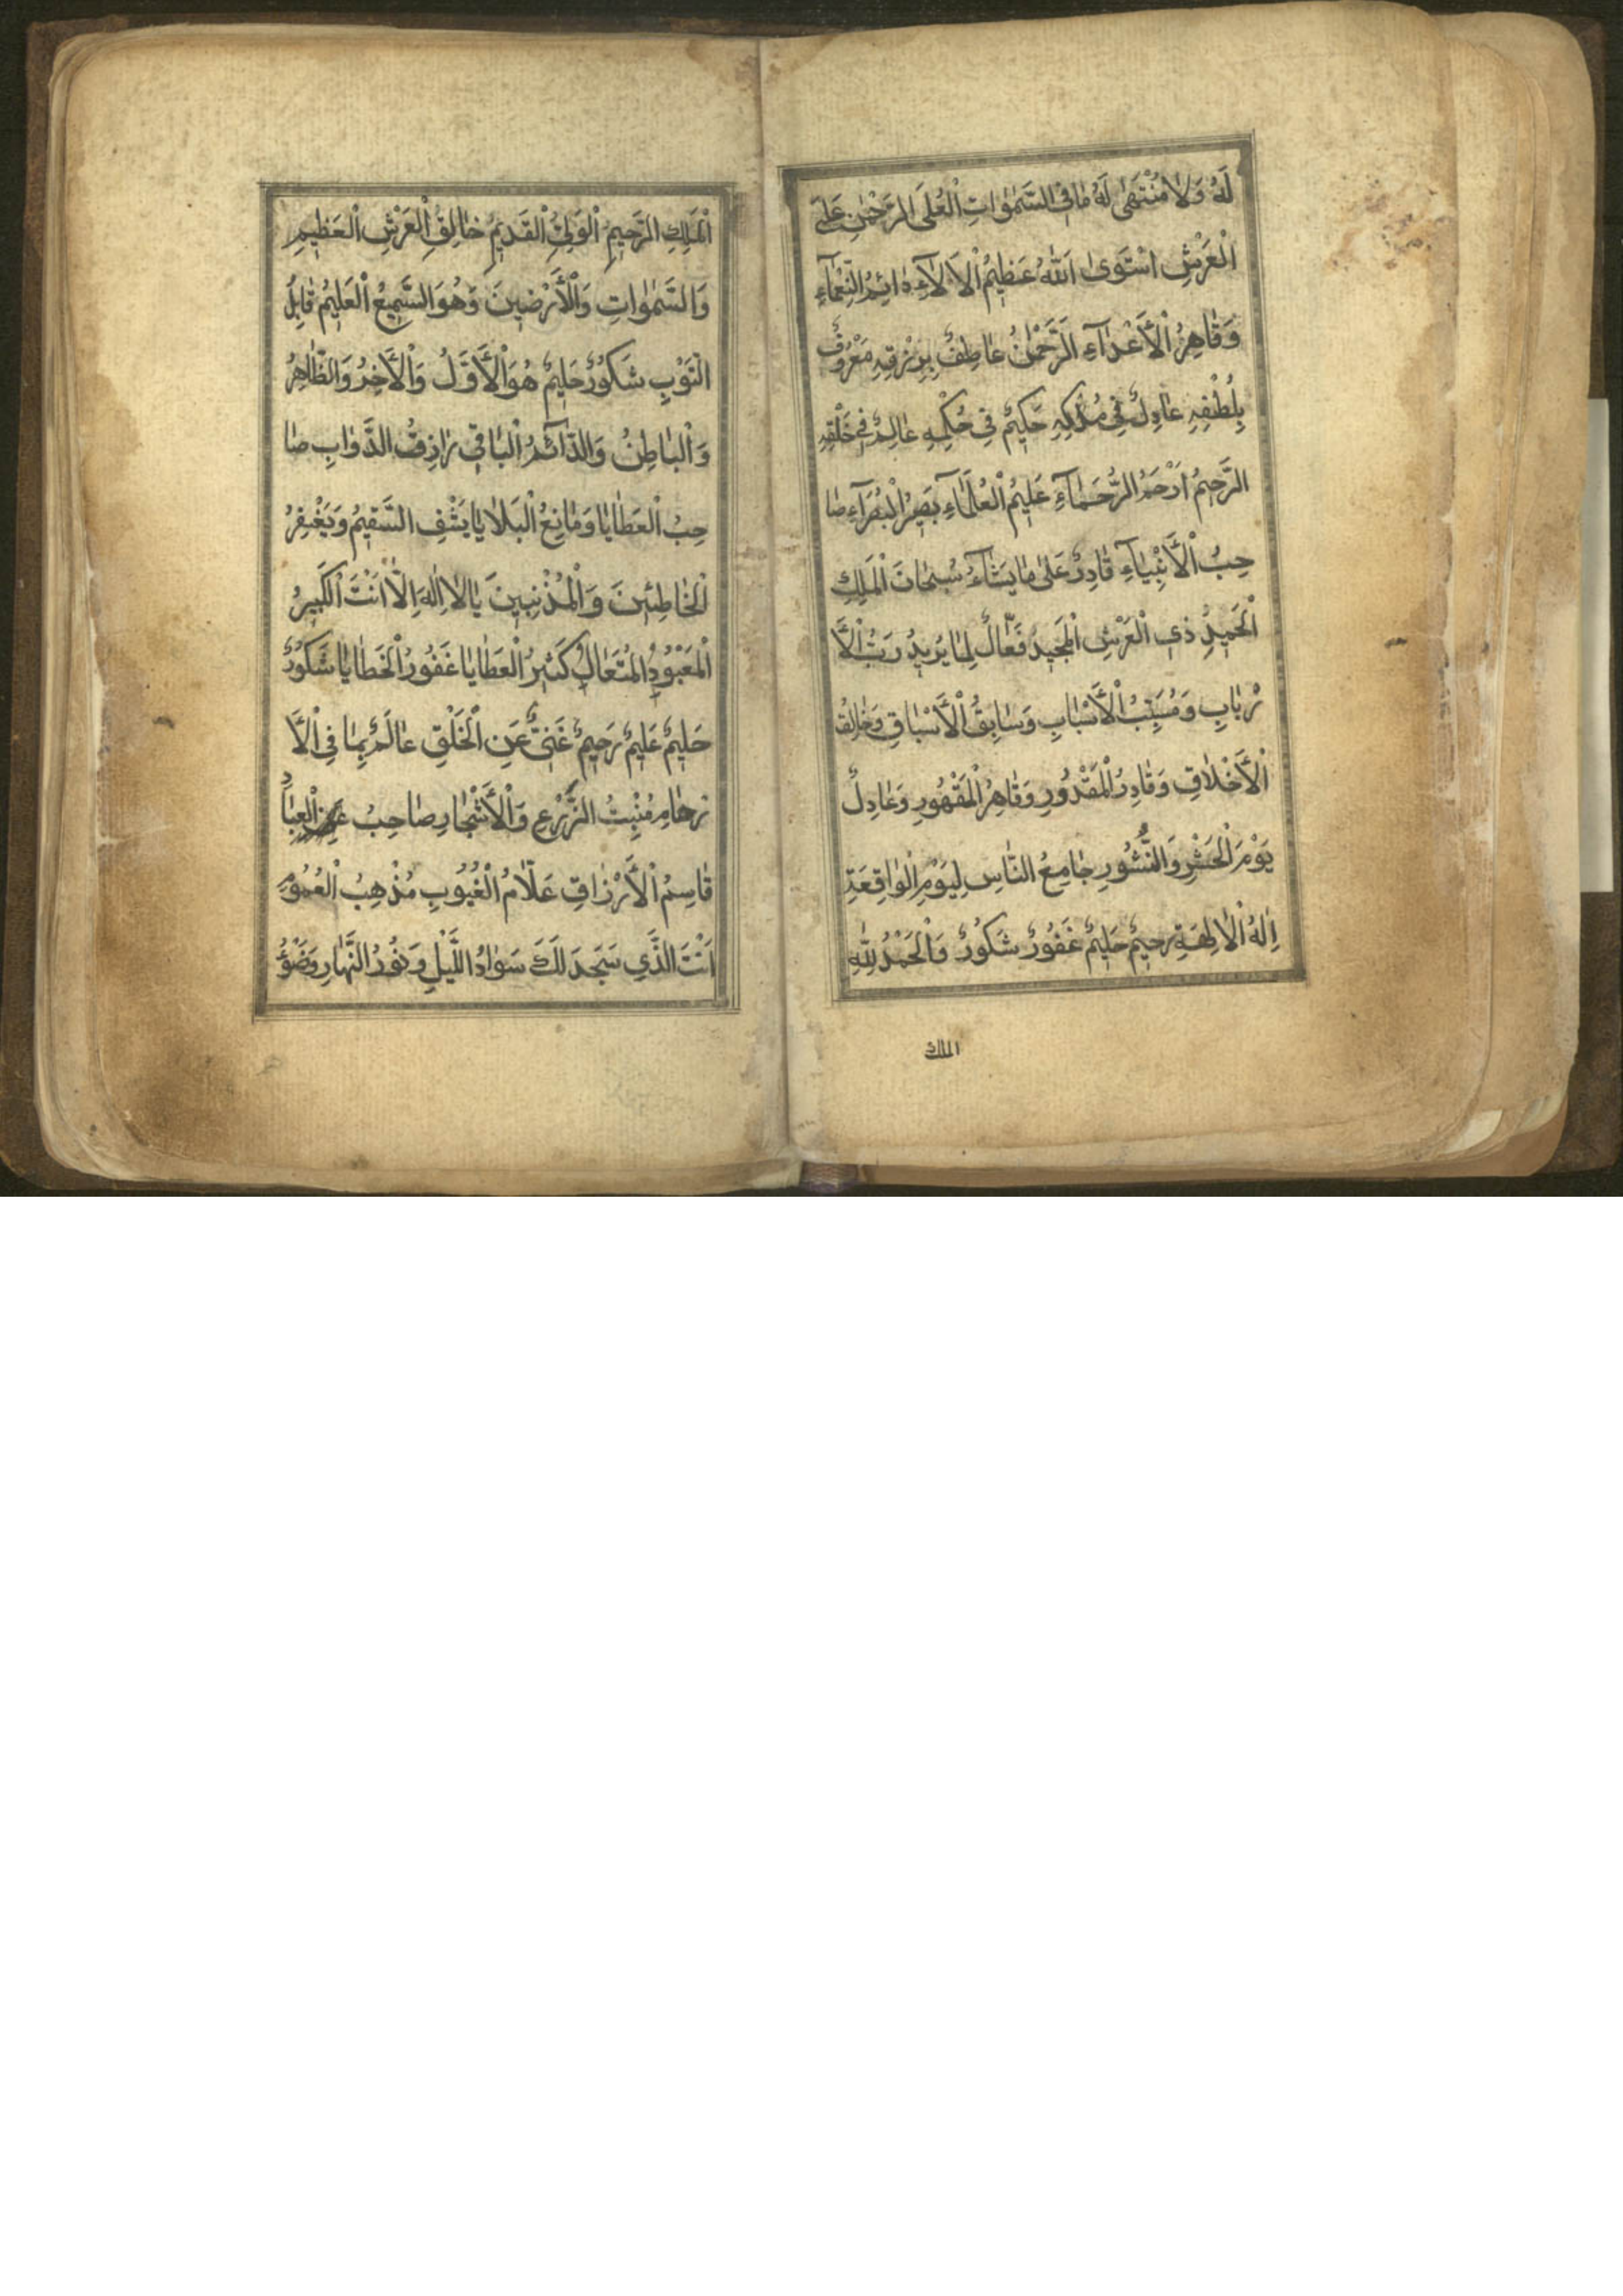 لَهُ وَلَا مُنْتَهَى لَهُ مَا فِي السَّمٰوَاتِ الْعُلَى الرَّحْمٰنِ عَلَى
الْعَرْشِ اسْتَوَى اَللّٰهُ عَظِيمُ الْاَلَآءِ دَائِمُ النَّعْمَآءِ
وَقَاهِرُ الْأَعْدَآءِ الرَّحْمٰنُ عَاطِفٌ بِرِزْقِهِ مَعْرُوفٌ
بِلُطْفِهِ عَادِلٌ فِي مُلْكِهِ حَكِيمٌ فِي حُكْمِهِ عَالِمٌ فِي خَلْقِهِ
الرَّحِيمُ اَرْحَمُ الرُّحَمَآءِ عَلِيمُ الْعُلَمَآءِ بَصِيرُ الْبُصَرَآءِ صَا
حِبُ الْأَنْبِيَآءِ قَادِرٌ عَلَى مَا يَشَآءُ سُبْحَانَ الْمَلِكِ
الْحَمِيدِ ذِي الْعَرْشِ الْمَجِيدُ فَعَّالٌ لِمَا يُرِيدُ رَبُّ الْأَ
رْبَابِ وَمُسَبِّبُ الْأَسْبَابِ وَسَابِقُ الْأَسْبَاقِ وَخَالِقُ
الْأَخْلَاقِ وَقَادِرُ الْمَقْدُورِ وَقَاهِرُ الْمَقْهُورِ وَعَادِلٌ
يَوْمَ الْحَشْرِ وَالنُّشُورِ جَامِعُ النَّاسِ لِيَوْمِ الْوَاقِعَةِ
اِلٰهُ الْاٰلِهَةِ رَحِيمٌ حَلِيمٌ غَفُورٌ شَكُورٌ وَالْحَمْدُ لِلّٰهِ
الملك
الْمَلِكِ الرَّحِيمِ الْوَلِيُّ الْقَدِيمُ خَالِقُ الْعَرْشِ الْعَظِيمِ
وَالسَّمٰوَاتِ وَالْأَرْضِينَ وَهُوَ السَّمِيعُ الْعَلِيمُ قَابِلُ
التَّوْبِ شَكُورٌ حَلِيمٌ هُوَ الْأَوَّلُ وَالْأَخِرُ وَالظَّاهِرُ
وَالْبَاطِنُ وَالدَّآئِمُ الْبَاقِي رَازِقُ الدَّوَابِ صَا
حِبُ الْعَطَايَا وَمَانِعُ الْبَلَايَا يَشْفِ السَّقِيمُ وَيَغْفِرُ
الْخَاطِئِينَ وَالْمُذْنِبِينَ يَا لَا اِلٰهَ اِلَّا اَنْتَ الْكَبِيرُ
الْمَعْبُودُ الْمُتَعَالِ كَثِيرُ الْعَطَايَا غَفُورُ الْخَطَايَا شَكُورٌ
حَلِيمٌ عَلِيمٌ رَحِيمٌ غَنِيٌّ عَنِ الْخَلْقِ عَالَمٌ بِمَا فِي الْأَ
رْحَامِ مُنْبِتُ الزَّرْعِ وَالْأَشْجَارِ صَاحِبُ الْعِبَادِ
قَاسِمُ الْأَرْزَاقِ عَلَّامُ الْغُيُوبِ مُذْهِبُ الْغُمُومِ
اَنْتَ الَّذِي سَجَدَ لَكَ سَوَادُ اللَّيْلِ وَنُورُ النَّهَارِ وَضَوْءُ